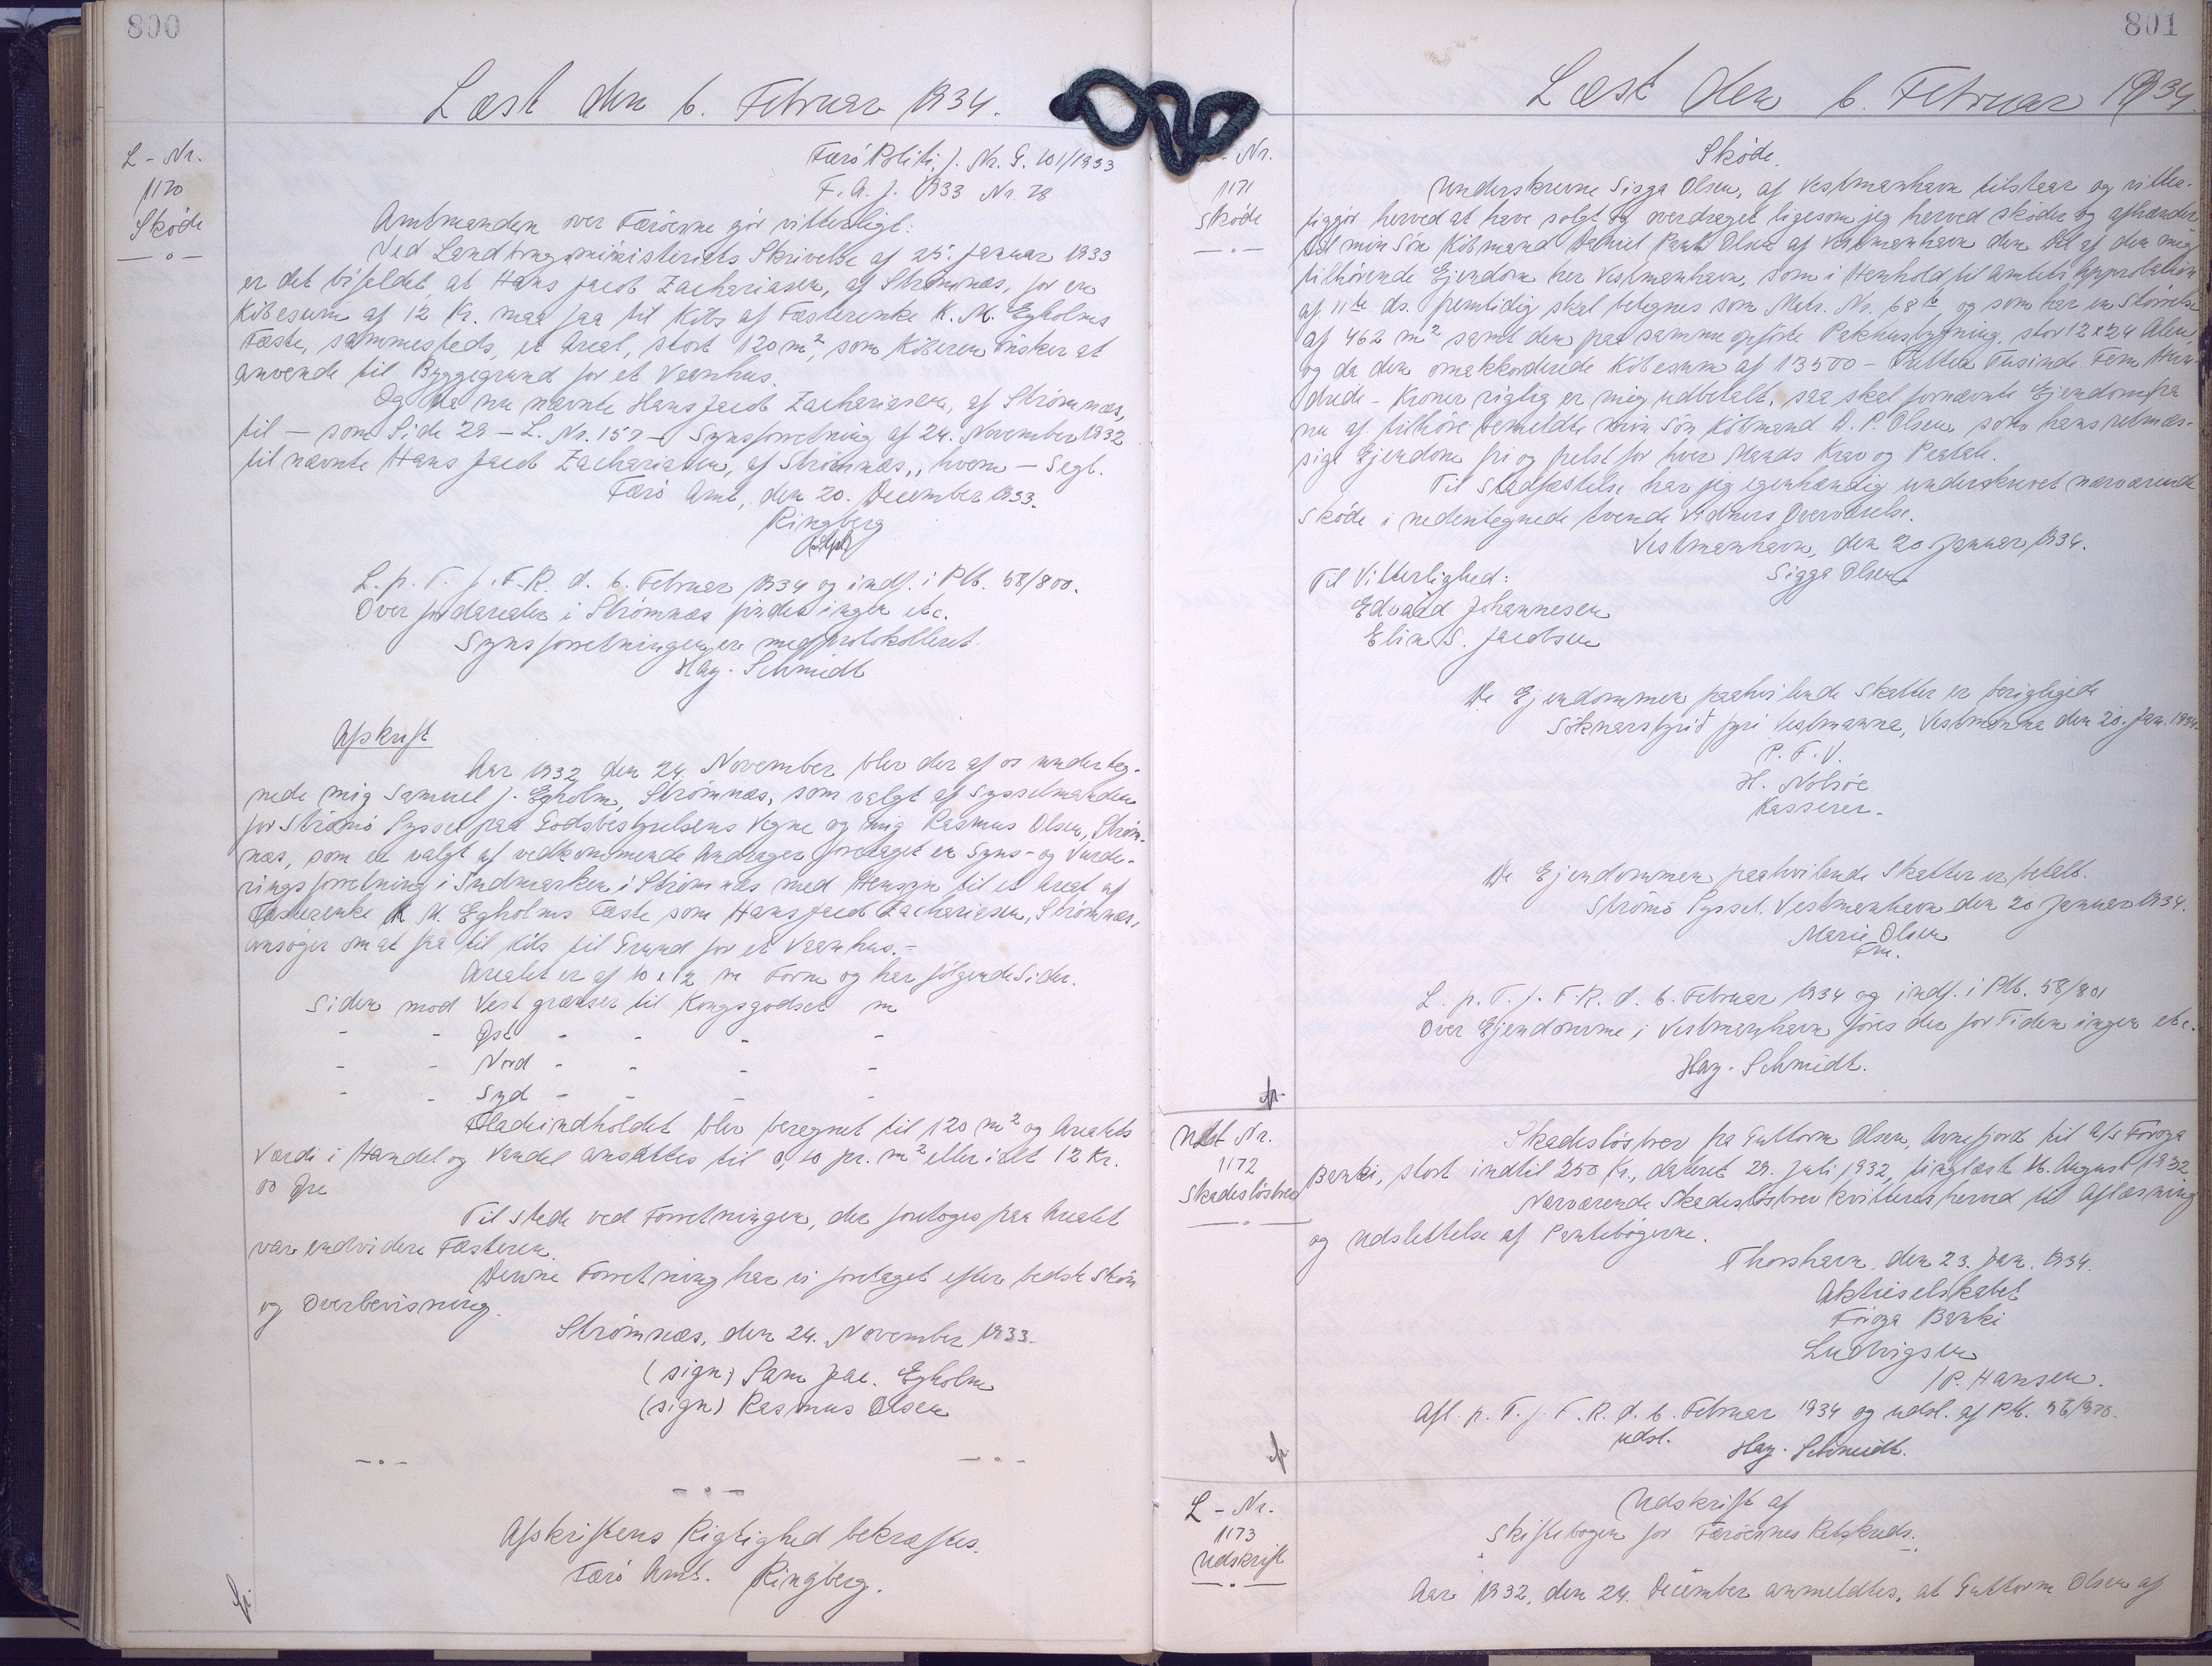 800
Læst den 6. Februar 1934.
L - Nr.
1170
Sköde
Færö Politi. J. Nr. G. 101/1933
F. A. J. 1933 Nr. 78
Amtmanden over Færöerne gör vitterligt:
Ved Landbrugsministeriets Skrivelse af 25. Januar 1933
er det bifaldet at Hans Jacob Zachariasen, af Strömnæs, for en
Köbesum af 12 Kr. maa faa til Köbs af Fæsterenke K. M. Egholms
Fæste, sammesteds, et Areal, stort 120 m², som Köberen önsker at
anvende til Byggegrund for et Vaanhus.
Og da nu nævnte Hans Jacob Zachariasen, af Strömnæs,
til — som Side 29 — L. Nr. 157 — Synsforretning af 24. November 1932
til nævnte Hans Jacob Zachariasen, af Strömnæs,, hvem — Segl.
Færö Amt, den 20. December 1933.
Ringberg
L. p. T. f. F. R. d. 6. Februar 1934 og indf. i Ptb. 58/800.
Over Jordarealer i Strömnæs findes ingen etc.
Synsforretningen er medprotokolleret.
Hay-Schmidt
Afskrift
Aar 1932 den 24. November blev der af os underteg-
nede mig Samuel J. Egholm, Strömnæs, som valgt af Sysselmanden
for Strömö Syssel paa Godsbestyrelsens Vegne og mig Rasmus Olsen, Ström-
næs, som er valgt af vedkommende Andrager foretaget en Syns- og Vurde-
ringsforretning i Indmarken i Strömnæs med Hensyn til et Areal af
Fæsterenke K. M. Egholms Fæste som Hans Jacob Zachariasen, Strömnæs,
ansöger om at faa til Köbs til Grund for et Vaanhus.-
Arealet er af 10 x 12 m Form og har fölgende Sider.
Siden mod Vest grænser til Kongsgodset m
- - Öst - - - -
- - Nord - - - -
- - Syd - - - -
Fladeindholdet blev beregnet til 120 m² og Arealets
Værdi i Handel og Vandel ansættes til 0,10 pr. m² eller ialt 12 Kr.
00 Øre
Til Stede ved Forretningen, der foretoges paa Arealet
var endvidere Fæsteren.
Denne Forretning har vi foretaget efter bedste Skön
og Overbevisning.
Strömnæs, den 24. November 1933.
(sign) Sam Jac. Egholm
(sign) Rasmus Olsen
Afskriftens Rigtighed bekræftes.
Færö Amt. Ringberg.
801
Læst den 6. Februar 1934
- Nr.
1171
Sköde
Sköde.
Underskrevne Sigga Olsen, af Vestmanhavn tilstaar og vitter-
liggör herved at have solgt og overdraget ligesom jeg herved sköder og afhænder
til min Sön Köbmand Daniel Pauli Olsen af Vestmanhavn den Del af den mig
tilhörende Ejendom her Vestmanhavn, som i Henhold til Amtets Approbation
af 11te ds. fremtidig skal betegnes som Matr. Nr. 68 og som har en Störrelse
af 462 m² samt den paa samme opförte Pakhusbygning, stor 12 x 24 Alen,
og da den omakkorderede Köbesum af 13500 - Tretten Tusinde Fem Hun-
drede - Kroner rigtig er mig udbetalt, saa skal fornævnte Ejendom fra
nu af tilhöre bemeldte min Sön Köbmand D. P. Olsen som hans retmæs-
sige Ejendom fri og frelst for hver Mands Krav og Paatale.
Til Stadfæstelse har jeg egenhændig underskrevet nærværende
Sköde i nedentegnede tvende Vidners Overværelse.
Vestmanhavn, den 20. Januar 1934.
Til Vitterlighed: Sigga Olsen
Edvard Johannesen
Elin S. Jacobsen
De Ejendommen paahvilende Skatter er berigtigede
Söknarstýrið fyri Vestmanna, Vestmanna den 20. Jan. 1934.
P. F. V.
H. Nolsöe
Kasserer.
De Ejendommen paahvilende Skatter er betalt.
Strömö Syssel, Vestmanhavn den 20 Januar 1934.
Marie Olsen
Fm.
L. p. T. f. F. R. d. 6. Februar 1934 og indf. i Ptb. 58/801
Over Ejendomme i Vestmanhavn föres der for Tiden ingen etc.
Hay-Schmidt.
Udsl Nr.
1172
Skadeslösbrev
Skadeslösbrev fra Guttorm Olsen, Arnefjord til A/s Föroya
Banki, stort indtil 250 Kr., dateret 29. Juli 1932, tinglæst 16. August 1932
Nærværende Skadeslösbrev kvitteres herved til Aflæsning
og Udslettelse af Pantebögerne.
Thorshavn, den 23. Jan. 1934.
Aktieselskabet
Föroya Banki
Ludvigsen
/P. Hansen.
Afl. p. T. f. F. R. d. 6. Februar 1934 og udsl. af Ptb.
udsl. Hay-Schmidt.
L - Nr.
1173
Udskrift
Udskrift af
Skiftebogen for Færöernes Retskreds.
Aar 1932, den 24. December anmeldtes, at Guttorm Olsen af